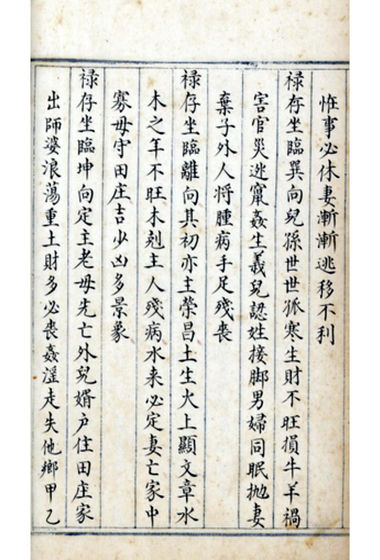 恠事必休妻漸漸逃移不利
禄存坐臨巽向兒孫世世孤寒生財不旺損牛羊禍
害官災逃竄姦生義兒認姓接脚男婦同眠抛妻
棄子外人将腫病手足殘喪
禄存坐臨離向其初亦主榮昌土生火上顯文章水
木之年不旺木剋主人殘病水来必定妻亡家中
寡母守田庄吉少凶多景象
禄存坐臨坤向定主老母先亡外兒婿户住田庄家
出師婆浪蕩重土財多必喪姦滛走失他鄉甲乙